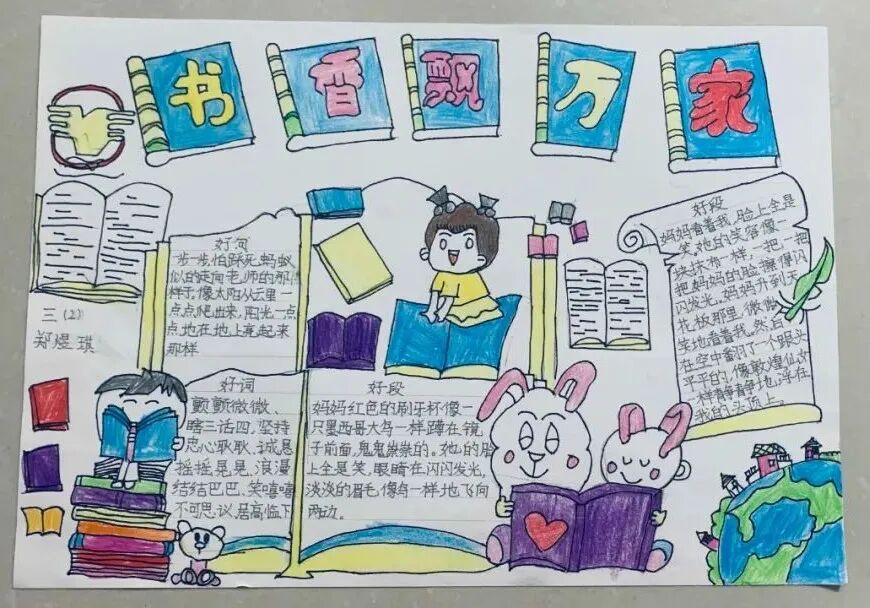 书香飘万家
三(2)
郑煜琪
好句
一步一步怕踩死蚂蚁
似的走向老师的那
样子,像太阳从云里一
点点爬出来,阳光一点
点地在地上亮起来
那样
好词
颤颤微微、
瞎三话四、坚持
忠心耿耿、诚恳
摇摇晃晃、浪漫
结结巴巴、笑嘻嘻
不可思议、居高临下
好段
妈妈红色的刷牙杯像一
只墨西哥大鸟一样,蹲在镜
子前面,鬼鬼祟祟的。她的脸
上全是笑,眼睛在闪闪发光,
淡淡的眉毛像鸟一样地飞向
两边。
好段
妈妈看着我,脸上全是
笑。她的笑容像一
块抹布一样,一把一把
把妈妈的脸擦得闪
闪发光。妈妈升到天
花板那里,微微
笑地看着我。然后
在空中翻了一个跟头
平平的,像敦煌仙女
一样静静地,浮在
我的头顶上。